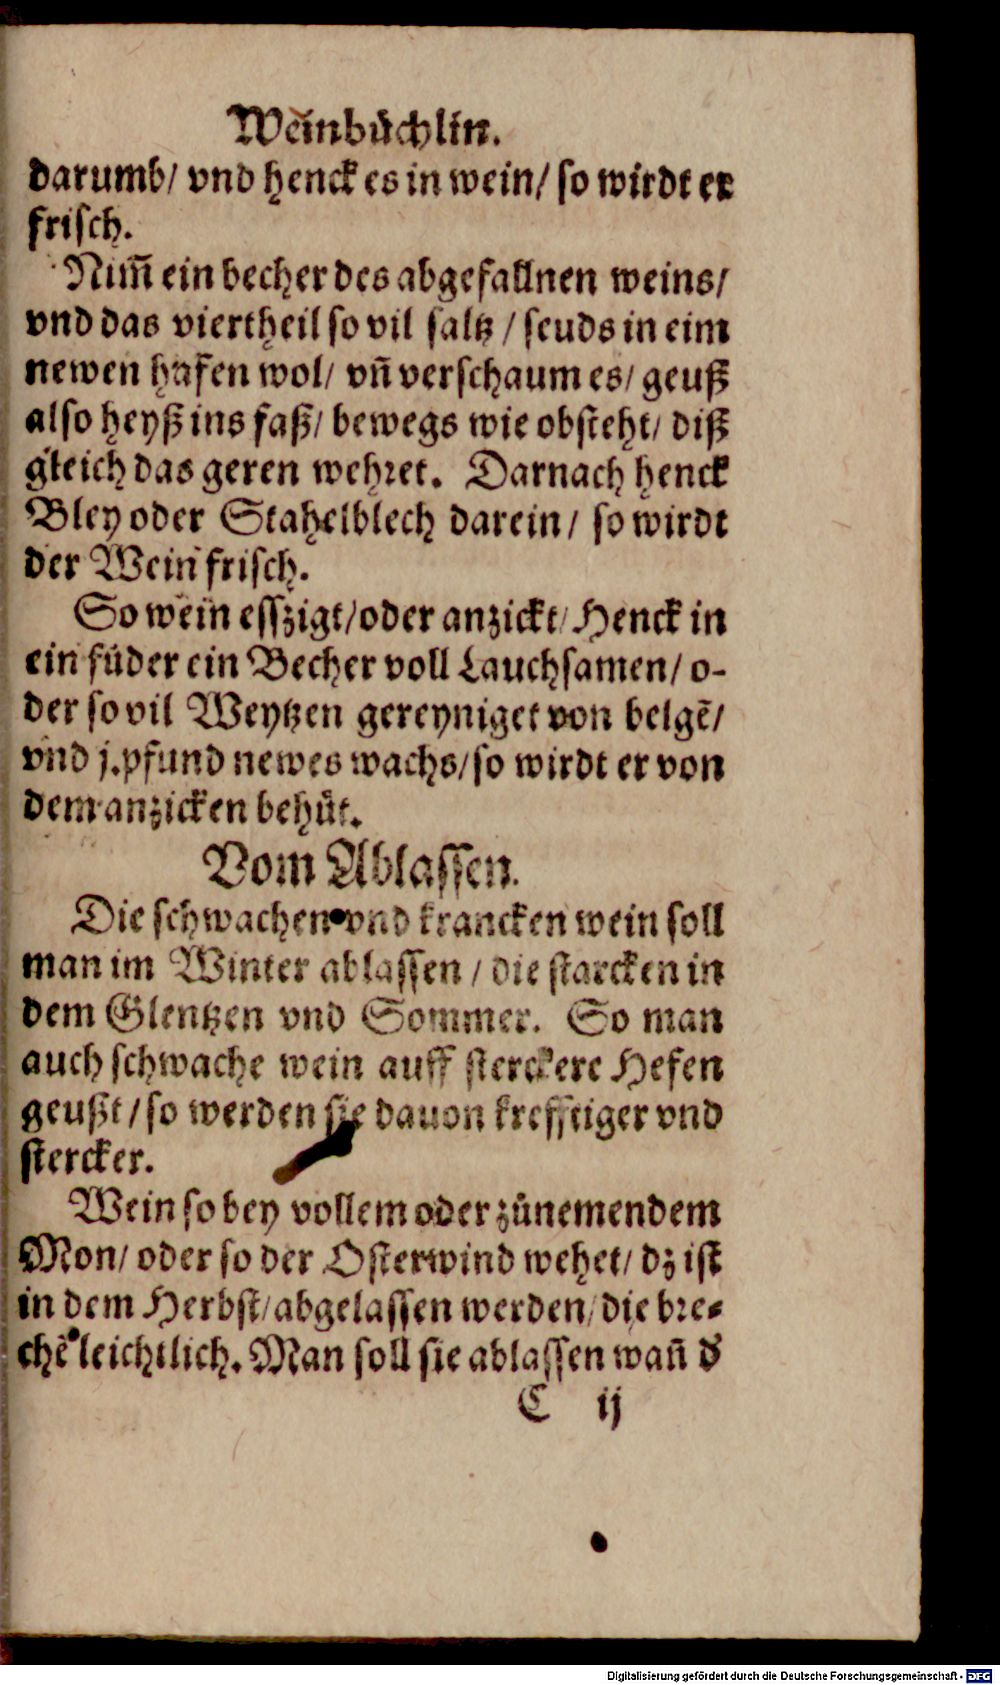 Weinbuͤchlin.
darumb/ vnd henck es in wein/ so wirdt er
frisch.
Nim̄ ein becher des abgefallnen weins/
vnd das viertheil so vil saltz / seuds in eim
newen hafen wol/ vn̄ verschaum es/ geuß
also heyß ins faß/ bewegs wie obsteht/ diß
gleich das geren wehret. Darnach henck
Bley oder Stahelblech darein/ so wirdt
der Wein frisch.
So wein esszigt/ oder anzickt/ Henck in
ein fuͤder ein Becher voll Lauchsamen/ o-
der so vil Weytzen gereyniget von belgē/
vnd j. pfund newes wachs/ so wirdt er von
dem anzicken behuͤt.
Vom Ablassen.
Die schwachen vnd krancken wein soll
man im Winter ablassen / die starcken in
dem Glentzen vnd Sommer. So man
auch schwache wein auff sterckere Hefen
geußt / so werden sie dauon krefftiger vnd
stercker.
Wein so bey vollem oder zuͤnemendem
Mon/ oder so der Osterwind wehet/ dz ist
in dem Herbst/ abgelassen werden/ die bre-
chē leichtlich. Man soll sie ablassen wan̄ d'
C ij
Digitalisierung gefördert durch die Deutsche Forschungsgemeinschaft - DFG